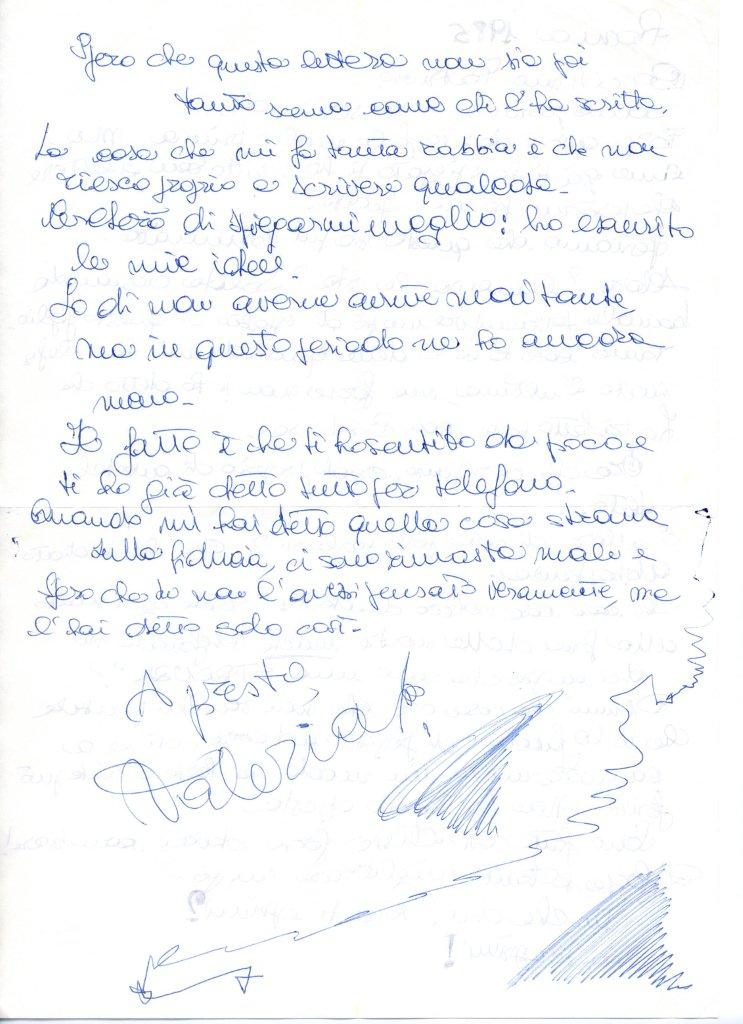 Spero che questa lettera non sia poi
tanto scema come chi l'ha scritta.
La cosa che mi fa tanta rabbia è che non
riesco proprio a scrivere qualcosa.
Cercherò di spiegarmi meglio: ho esaurito
le mie idee.
So di non averne avute mai tante
ma in questo periodo ne ho ancora
meno.
Il fatto è che ti ho sentito da poco e
ti ho già detto tutto per telefono.
Quando mi hai detto quella cosa strana
sulla fiducia, ci sono rimasta male e
spero che tu non l'avessi pensato veramente, ma
l'hai detto solo così.
A presto,
Valeria